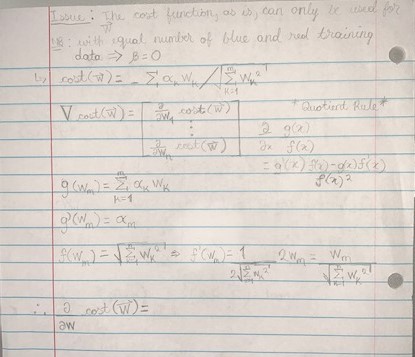 Issue: The cost function, as is, can only be used for
NB: with equal number of blue and red training
data ⇒ β=0
cost(w⃗) = - Σ αₖ wₖ / √(Σₖ₌₁ᵐ wₖ²)
∇ cost(w⃗) = [ ∂/∂w₁ cost(w⃗) ⋮ ∂/∂wₘ cost(w⃗) ]
* Quotient Rule *
∂/∂x g(x)/f(x)
= g'(x) f(x) - g(x) f'(x) / f(x)²
g(wₘ) = Σₖ₌₁ᵐ αₖ wₖ
g'(wₘ) = αₘ
f(wₘ) = √(Σₖ₌₁ᵐ wₖ²) ⇒ f'(wₘ) = 1 / 2√(Σₖ₌₁ᵐ wₖ²) 2wₘ = wₘ / √(Σₖ₌₁ᵐ wₖ²)
∴ ∂/∂w cost(w⃗) =